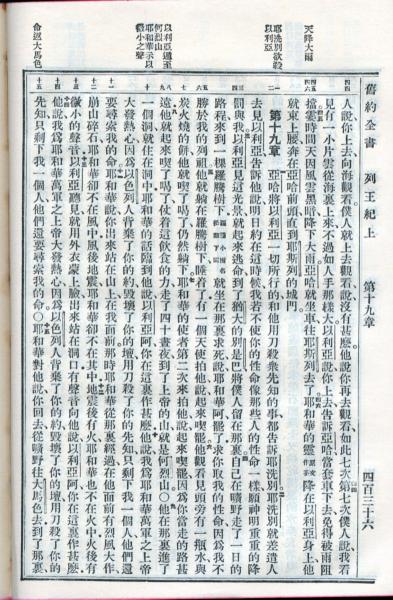 舊約全書 列王紀上 第十九章 四百三十六
天降大雨
耶洗別欲殺
以利亞
以利亞遁至
何烈山
耶和華示以
微小之聲
命返大馬色
人說你上去向海觀看僕人就上去觀看說沒有甚麽他說你再去觀看如此七次第七次僕人說我看
見有一小片雲從海裏上來不過如人手那樣大以利亞說你上去告訴亞哈當套車下去免得被雨阻
擋霎時間天因風雲黑暗降下大雨亞哈就坐車往耶斯列去了耶和華的靈降在以利亞身上他
就束上腰奔在亞哈前頭直到耶斯列的城門
第十九章 亞哈將以利亞一切所行的和他用刀殺衆先知的事都告訴耶洗別耶洗別就差遣人
去見以利亞告訴他說明日約在這時候我若不使你的性命像那些人的性命一樣願神明重重的降
罰與我以利亞見這光景就起來逃命到了猶大的別是巴將僕人留在那裏自己在曠野走了一日的
路程來到一棵羅騰樹下就坐在那裏求死說耶和華阿罷了求你取我的性命因爲我不
勝於我的列祖他就躺在羅騰樹下睡着了有一個天使拍他說起來喫罷他觀看見頭旁有一瓶水與
炭火燒的餅他就喫了喝了仍然躺下耶和華的使者第二次來拍他說起來喫罷因爲你當走的路甚
遠他就起來喫了喝了仗着這飲食的力走了四十晝夜到了上帝的山就是何烈山○他在那裏進了
一個洞就住在洞中耶和華的話臨到他說以利亞阿你在這裏作甚麽他說我爲耶和華萬軍之上帝
大發熱心因爲以色列人背棄了你的約毀壞了你的壇用刀殺了你的先知只剩下我一個人他們還
要尋索我的命耶和華說你出來站在山上在我面前那時耶和華從那裏經過在他面前有烈風大作
崩山碎石耶和華卻不在風中風後地震耶和華卻不在其中地震後有火耶和華也不在火中火後有
微小的聲音以利亞聽見就用外衣蒙上臉出來站在洞口有聲音向他說以利亞阿你在這裏作甚麽
他說我爲耶和華萬軍之上帝大發熱心因爲以色列人背棄了你的約毀壞了你的壇用刀殺了你的
先知只剩下我一個人他們還要尋索我的命○耶和華對他說你回去從曠野往大馬色去到了那裏